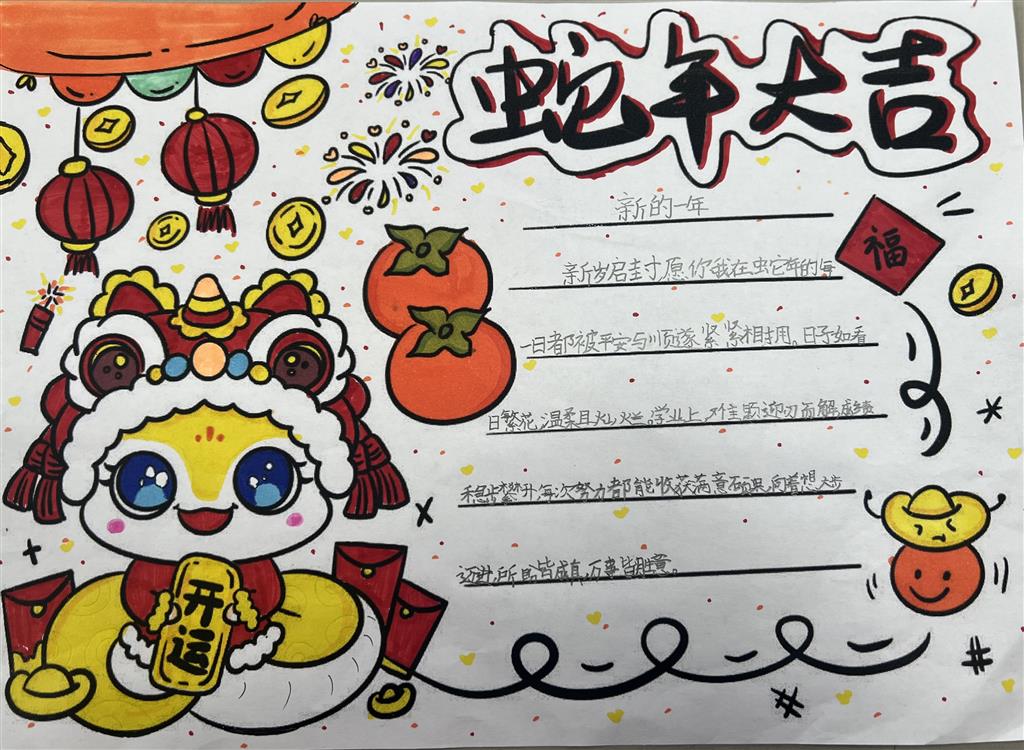 蛇年大吉
新的一年
福
新岁启封愿你我在蛇年的每
一日都被平安与顺遂紧紧相拥。日子如看
日繁花,温柔且灿烂。学业上,难题迎刃而解,成绩
稳步攀升每次努力都能收获满意硕果,向着想大步
迈进,所愿皆成真,万事皆胜意。
开运